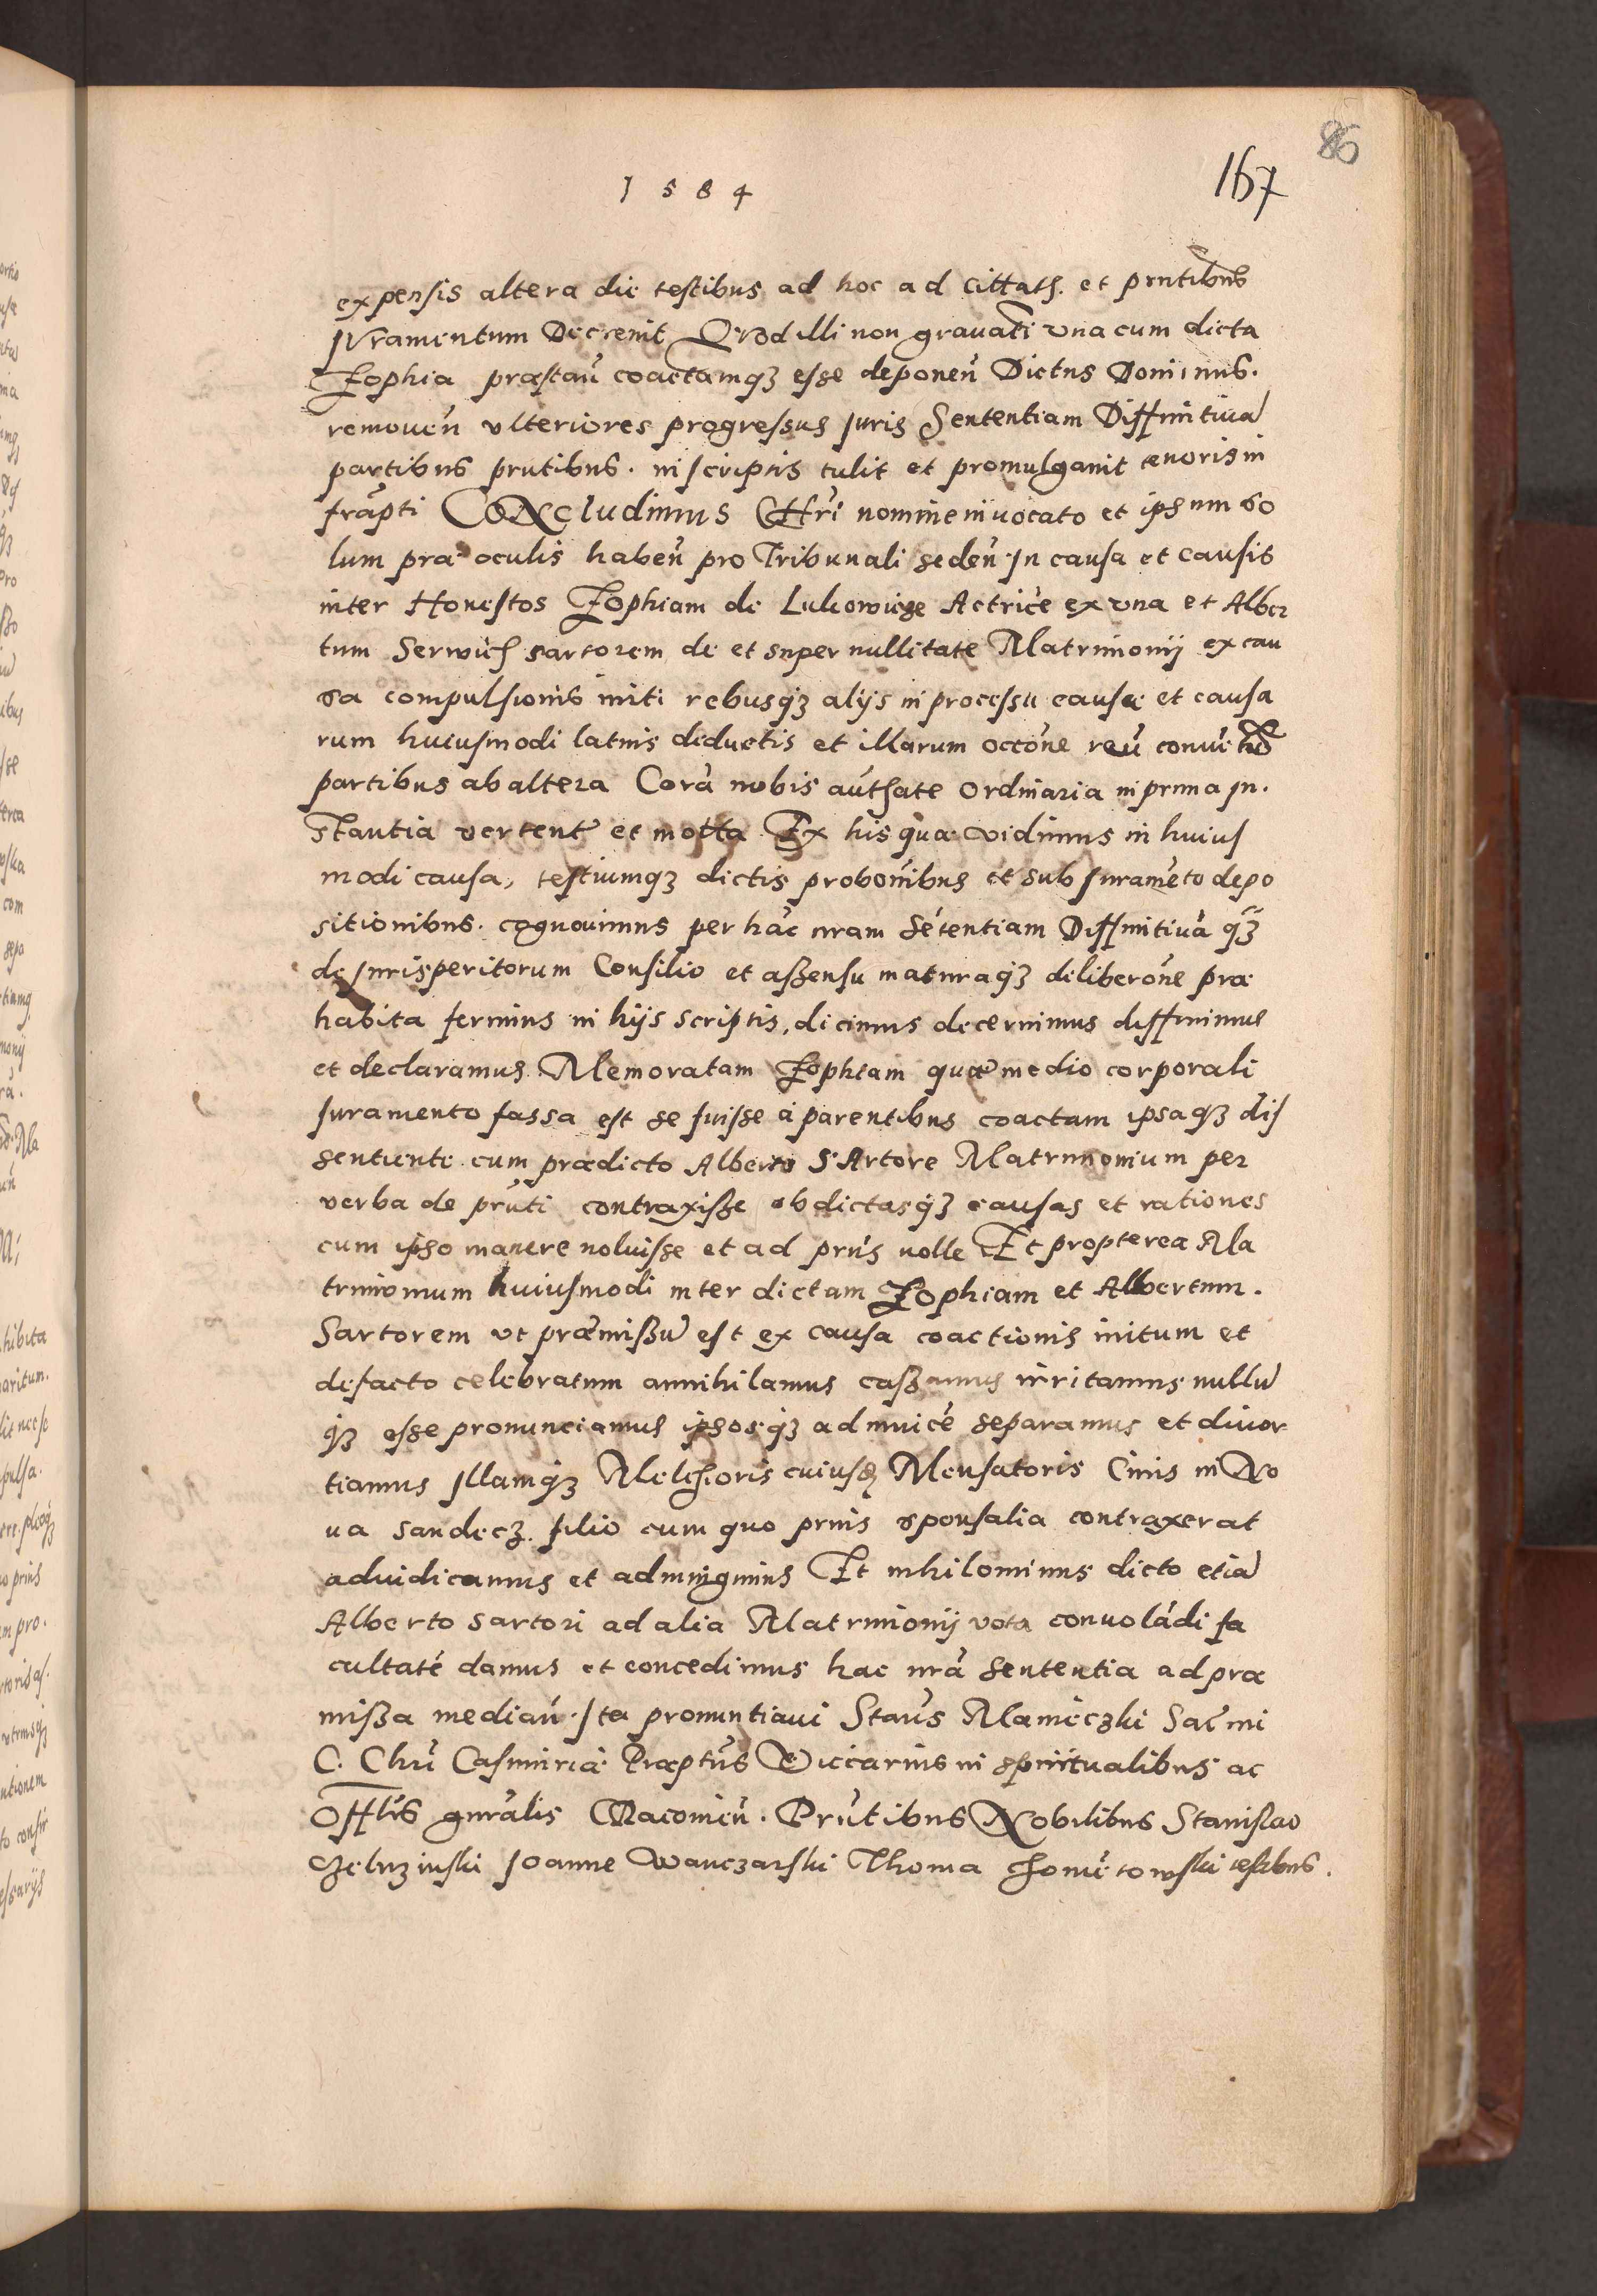 86
167
1584
expensis altera die testibus ad hoc ad cittatis. et pñtibus
Iuramentum Decrevit Quod illi non gravati una cum dicta
Zophia præstañ coactamqȝ esse deponeñ Dictus Dominus.
removeñ ulteriores progressus Juris Sententiam Diffinitivã
partibus pñtibus. in scriptis tulit et promulgavit tenoris in
frãpti COÑcludimus Chri nomine invocato et ipsum so
lum præ oculis habeñ pro Tribunali sedeñ In causa et causis
inter Honestos Zophiam de Lukowicze Actricẽ ex una et Alber
tum Serwich sartorem de et super nullitate Matrimonij ex cau
sa compulsionis initi rebusqȝ alijs in processu causæ et causa
rum huiusmodi latius deductis et illarum occõne reũ
partibus ab altera Corã nobis authate ordinaria in prima In.
stantia verteñt et motta Ex his quæ vidimus in huius
modi causa, testiumqȝ dictis probõnibus et sub Juramẽto depo
sitionibus. cognovimus per hãc nram sẽtentiam Diffinitivã qȝ
de Jurisperitorum Consilio et assensu maturaqȝ deliberõne præ
habita ferimus in hijs scriptis, dicimus decernimus diffinimus
et declaramus Memoratam Zophiam quæ medio corporali
Juramento fassa est se fuisse à parentibus coactam ipsaqȝ dis
sentiente cum prædicto Alberto SArtore Matrimonium per
verba de pñti contraxisse obdictasqȝ causas et rationes
cum ipso manere noluisse et ad pñs nolle Et propterea Ma
trimonium huiusmodi inter dictam Zophiam et Albertum.
Sartorem ut præmissũ est ex causa coactionis initum et
defacto celebratum annihilamus cassamus irritamus nullũ
qȝ esse pronunciamus ipsosqȝ ad invicẽ separamus et divor
tiamus Illamqȝ Melchioris cuiusdã Mensatoris Civis in No
va Sandecȝ. filio cum quo prius sponsalia contraxerat
adiudicamus et adiungimus Et nihilominus dicto etiã
Alberto sartori ad alia Matrimonij vota convolãdi fa
cultatẽ damus et concedimus hac nrã sententia ad præ
missa mediañ. Ita pronuntiavi Staus Manieczki Sacmi
C. Chri Casimiriæ Præptus Viccarius in spiritualibus ac
Offlis gñralis Cracovieñ. Pñtibus Nobilibus Stanislao
Joanne Wanczarski Thoma Chomẽtowski testibus.